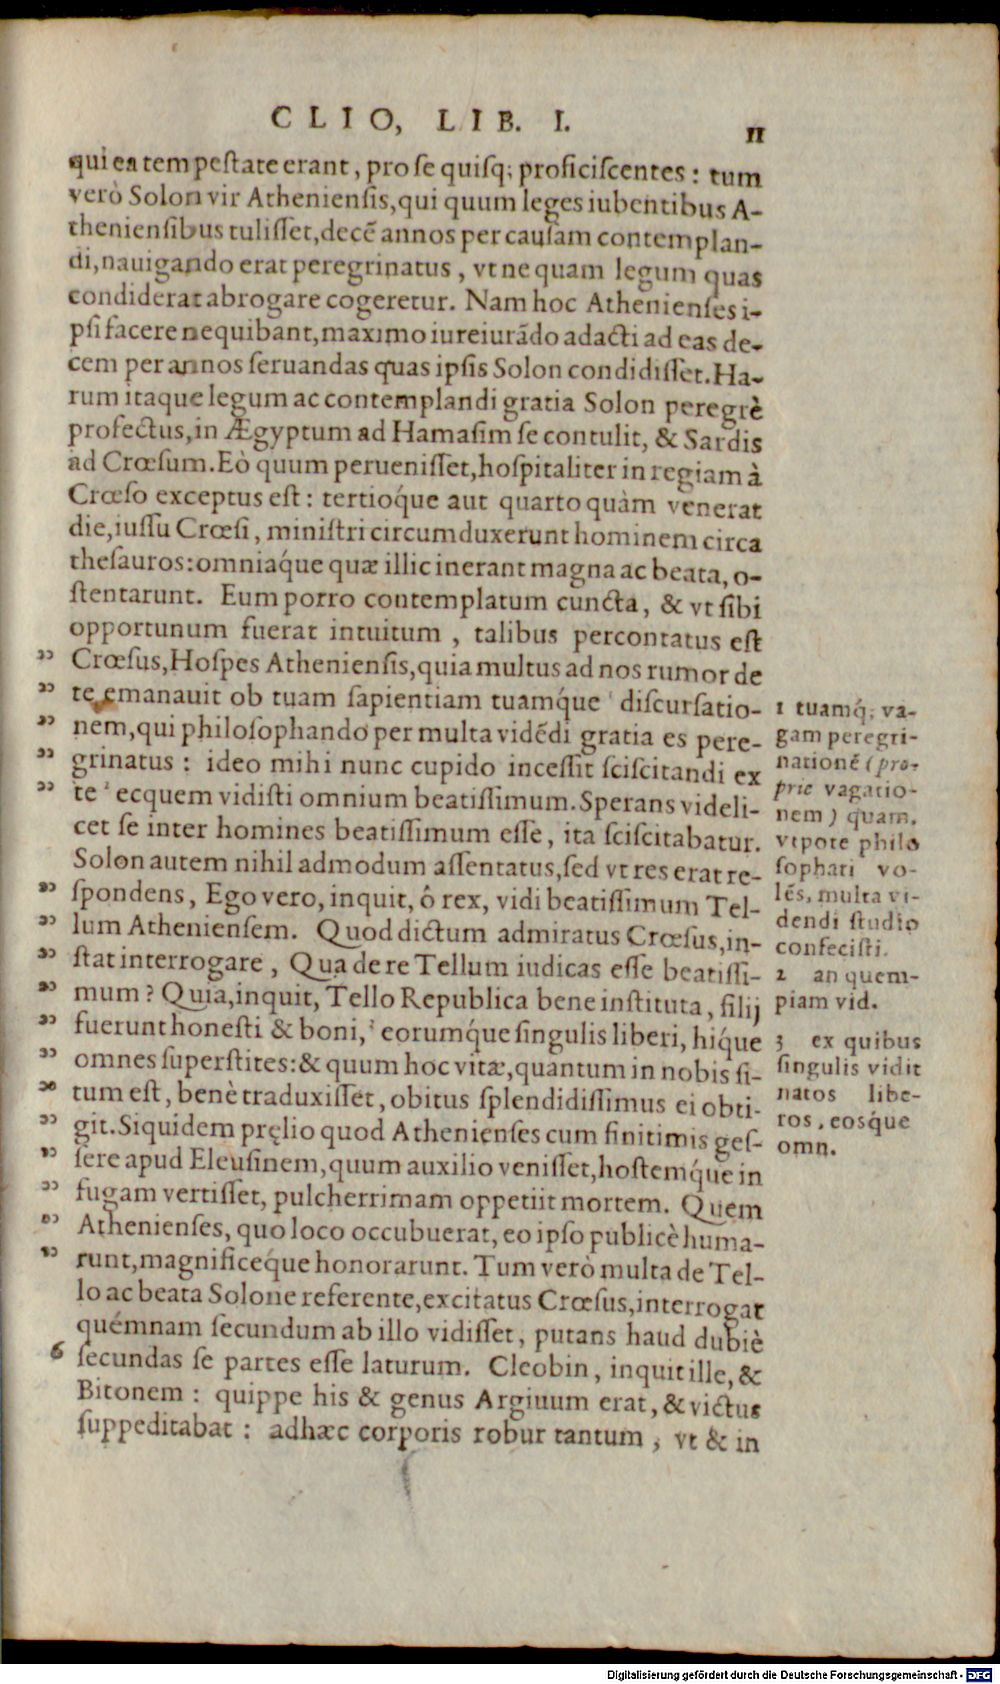 CLIO, LIB. I.
11
qui ea tempestate erant, pro se quisq; proficiscentes: tum
verò Solon vir Atheniensis, qui quum leges iubentibus A-
theniensibus tulisset, decẽ annos per causam contemplan-
di, nauigando erat peregrinatus, vt ne quam legum quas
condiderat abrogare cogeretur. Nam hoc Athenienses i-
psi facere nequibant, maximo iureiurãdo adacti ad eas de-
cem per annos seruandas quas ipsis Solon condidisset. Ha-
rum itaque legum ac contemplandi gratia Solon peregrè
profectus, in Ægyptum ad Hamasim se contulit, & Sardis
ad Crœsum. Eò quum peruenisset, hospitaliter in regiam à
Crœso exceptus est: tertioq́ue aut quarto quàm venerat
die, iussu Crœsi, ministri circumduxerunt hominem circa
thesauros: omniaq́ue quæ illic inerant magna ac beata, o-
stentarunt. Eum porro contemplatum cuncta, & vt sibi
opportunum fuerat intuitum, talibus percontatus est
" Crœsus, Hospes Atheniensis, quia multus ad nos rumor de
" te emanauit ob tuam sapientiam tuamq́ue ¹ discursatio-
" nem, qui philosophando per multa vidẽdi gratia es pere-
" grinatus: ideo mihi nunc cupido incessit sciscitandi ex
" te ² ecquem vidisti omnium beatissimum. Sperans videli-
cet se inter homines beatissimum esse, ita sciscitabatur.
Solon autem nihil admodum assentatus, sed vt res erat re-
" spondens, Ego vero, inquit, ô rex, vidi beatissimum Tel-
" lum Atheniensem. Quod dictum admiratus Crœsus, in-
" stat interrogare, Qua de re Tellum iudicas esse beatissi-
" mum? Quia, inquit, Tello Republica bene instituta, filij
" fuerunt honesti & boni, ³ eorumq́ue singulis liberi, hiq́ue
" omnes superstites: & quum hoc vitæ, quantum in nobis si-
" tum est, benè traduxisset, obitus splendidissimus ei obti-
" git. Siquidem pręlio quod Athenienses cum finitimis ges-
" sere apud Eleusinem, quum auxilio venisset, hostemq́ue in
" fugam vertisset, pulcherrimam oppetiit mortem. Quem
" Athenienses, quo loco occubuerat, eo ipso publicè huma-
" runt, magnificeq́ue honorarunt. Tum verò multa de Tel-
lo ac beata Solone referente, excitatus Crœsus, interrogat
quémnam secundum ab illo vidisset, putans haud dubiè
6 secundas se partes esse laturum. Cleobin, inquit ille, &
Bitonem: quippe his & genus Argiuum erat, & victus
suppeditabat: adhæc corporis robur tantum, vt & in
1 tuamq́; va-
gam peregri-
nationẽ (pro-
prie vagatio-
nem) quam,
vtpote philo
sophari vo-
lẽs, multa vi-
dendi studio
confecisti.
2 an quem-
piam vid.
3 ex quibus
singulis vidit
natos libe-
ros, eosq́ue
omn.
Digitalisierung gefördert durch die Deutsche Forschungsgemeinschaft - DFG